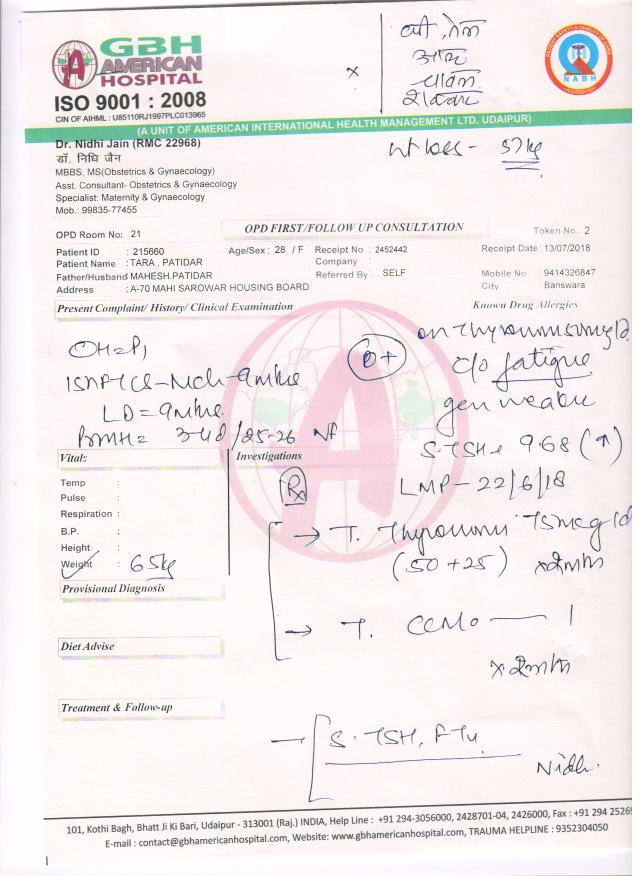 GBH
AMERICAN
HOSPITAL
ISO 9001 : 2008
CIN OF AIHML : U85110RJ1997PLC013965
घी, तेल
आलू
चावल
शक्कर
x
NABH
(A UNIT OF AMERICAN INTERNATIONAL HEALTH MANAGEMENT LTD. UDAIPUR)
Dr. Nidhi Jain (RMC 22968)
डॉ. निधि जैन
MBBS, MS(Obstetrics & Gynaecology)
Asst. Consultant- Obstetrics & Gynaecology
Specialist: Maternity & Gynaecology
Mob.: 99835-77455
wt loss - 57kg
OPD Room No: 21
OPD FIRST/FOLLOW UP CONSULTATION
Token No.: 2
Patient ID : 215660 Age/Sex : 28 / F Receipt No : 2452442 Receipt Date : 13/07/2018
Patient Name : TARA . PATIDAR Company :
Father/Husband MAHESH.PATIDAR Referred By : SELF Mobile No 9414326847
Address : A-70 MAHI SAROWAR HOUSING BOARD City : Banswara
Present Complaint/ History/ Clinical Examination Known Drug Allergies
OH=P1
B+
c/o fatigue
LD=
34d/25-26 NF
S.TSH= 9.68 (↑)
LMP - 22/6/18
Vital:
Investigations
Rx
Temp :
Pulse :
Respiration :
B.P. :
Height :
Weight : 65kg
→ T. Thyronorm 75mcg
(50+25)
Provisional Diagnosis
→ T. — 1
Diet Advise
Treatment & Follow-up
S. TSH,
Nidhi
101, Kothi Bagh, Bhatt Ji Ki Bari, Udaipur - 313001 (Raj.) INDIA, Help Line : +91 294-3056000, 2428701-04, 2426000, Fax : +91 294
E-mail : contact@gbhamericanhospital.com, Website: www.gbhamericanhospital.com, TRAUMA HELPLINE : 9352304050